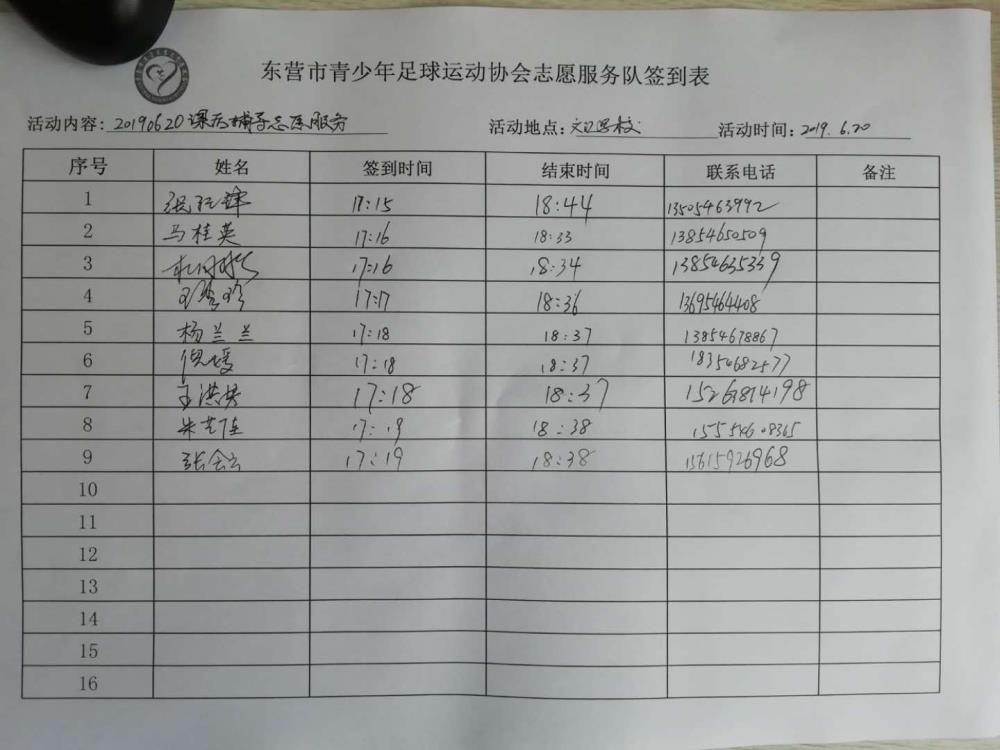 东营市青少年足球运动协会志愿服务队签到表
活动内容: 20190620课后辅导志愿服务 活动地点: 活动时间: 2019.6.20
序号 姓名 签到时间 结束时间 联系电话 备注
1 17:15 18:44 13505463992
2 马桂英 17:16 18:33 13854650509
3 17:16 18:34 13854635339
4 17:17 18:36 13695464408
5 杨兰兰 17:18 18:37 13854678867
6 倪媛 17:18 18:37 18354682577
7 王洪芳 17:18 18:37 15267814198
8 17:19 18:38 15554608365
9 张会云 17:19 18:38 15615926968
10
11
12
13
14
15
16